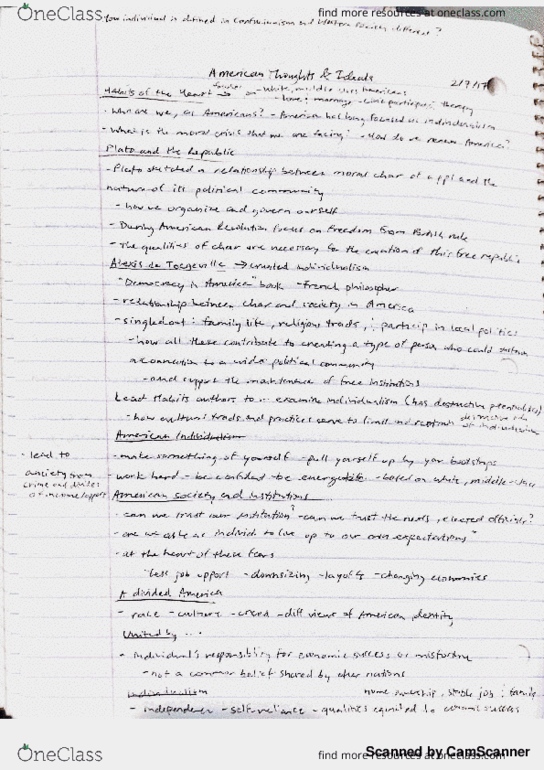 OneClass
find more resources at oneclass.com
How individual is defined in Confucianism and Western Society different?
American Thoughts & Ideals
2/7/17
Habits of the Heart → focus on - white, middle class Americans
- love & marriage - civic participation, therapy
- Who are we, as Americans? - America has long focused on individualism
- What is the moral crisis that we are facing? - How do we renew America?
Plato and the Republic
- Plato sketched a relationship between moral char of a ppl and the
nature of its political community
- how we organize and govern ourself
- During American Revolution focus on Freedom from British rule
- The qualities of char are necessary for the creation of this free republic
Alexis de Tocqueville → created individualism
"Democracy in America" book - French philosopher
- relationship between char and society in America
- singled out: family life, religious trads, & particip in local politics
- how all these contribute to creating a type of person who could sustain
a connection to a wider political community
- and support the maintenance of free institutions
Lead Habits authors to... examine individualism (has destructive potentialities)
- how cultural trads and practices serve to limit and restrain destructive side of individualism
American Individualism
- make something of yourself - pull yourself up by your bootstraps
- work hard - be confident - be energetic - based on white, middle-class
- lead to
anxiety from
crime and
American society and institutions
- can we trust our institution? - can we trust the media, elected officials?
- are we able as individ to live up to our own expectations?
- at the heart of these fears
less job support - downsizing - layoffs - changing economics
A divided America
- race - culture - creed - diff views of American identity
United by ...
- individual's responsibility for economic success or misfortune
- not a common belief shared by other nations
Individualism
home ownership, stable job & family
- independence - self-reliance - qualities equated to economic success
OneClass
find more resources at oneclass.com
Scanned by CamScanner